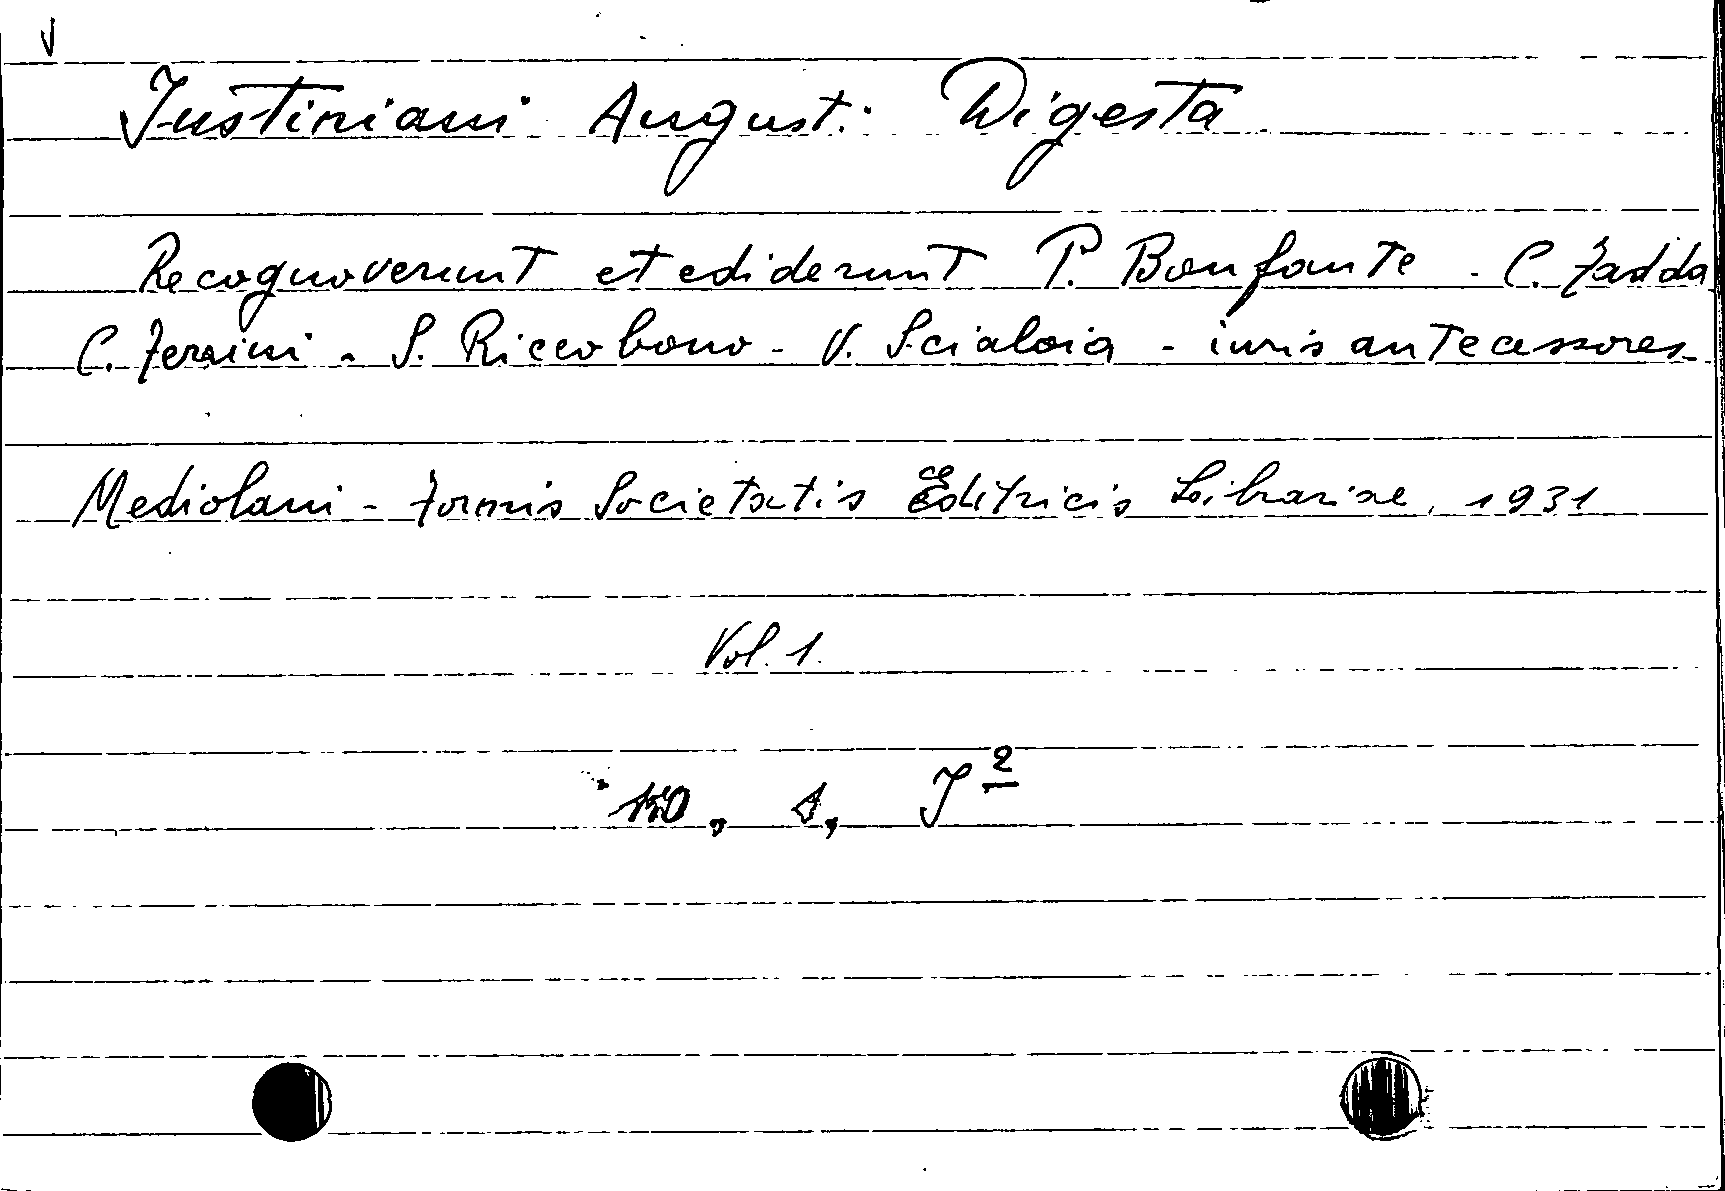 Justiniani August: Digesta
Recognoverunt et ediderunt P. Bonfante - C. Fadda
C. Ferrini - S. Riccobono - V. Scialoia - iuris antecessores
Mediolani - Formis Societatis Editricis Librariae, 1931
Vol. 1.
J 2